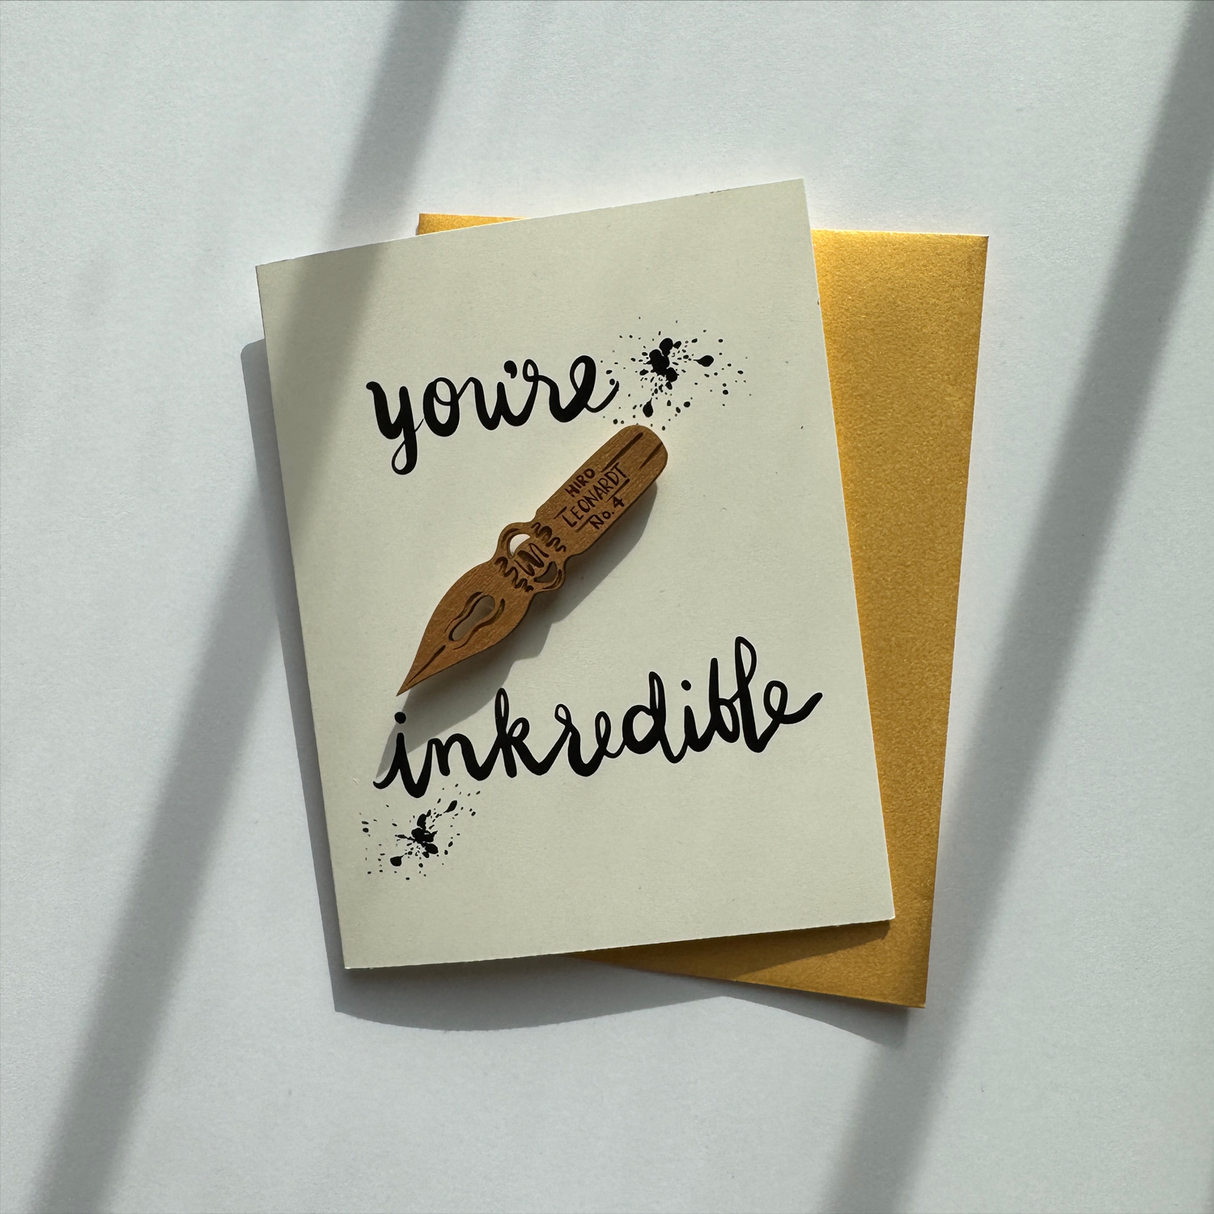 you're
HIRO
LEONARDT
No. 4
inkredible